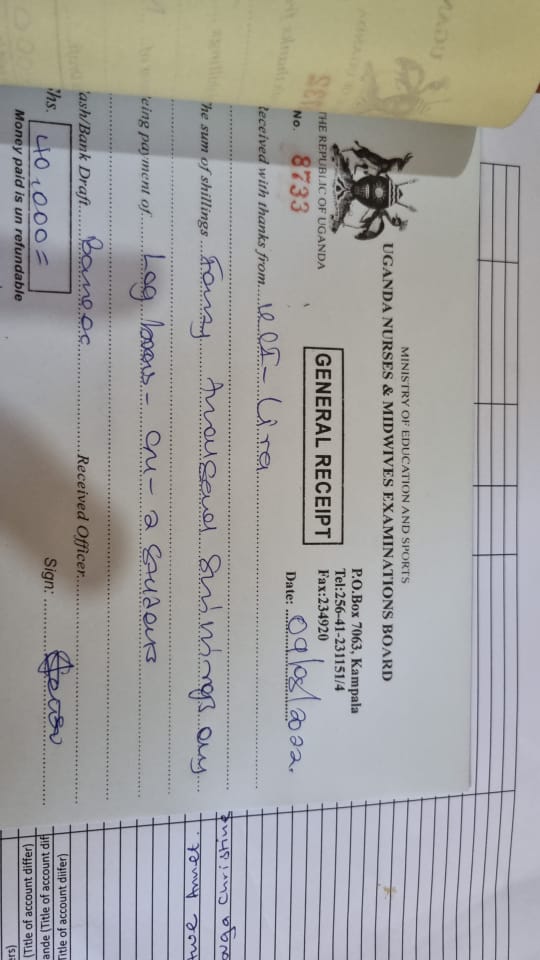 MINISTRY OF EDUCATION AND SPORTS
UGANDA NURSES & MIDWIVES EXAMINATIONS BOARD
THE REPUBLIC OF UGANDA
P.O.Box 7063, Kampala
Tel:256-41-231151/4
Fax:234920
GENERAL RECEIPT
No. 8733
Date: 09/05/2022
Received with thanks from Lira
The sum of shillings Fourty thousand shillings only
eing payment of Log books - CM - 2 Students
ash/Bank Draft Received Officer
hs. 40,000=
Sign:
Money paid is un refundable
Christine
Annet
(Title of account differ)
ande (Title of account dif
Title of account differ)
ers)